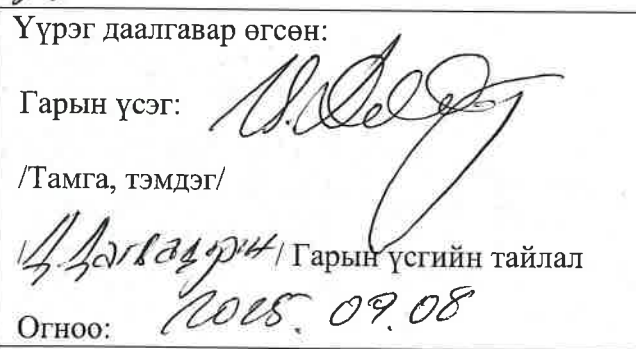 Үүрэг даалгавар өгсөн:
Гарын үсэг:
/Тамга, тэмдэг/
/Ц. Дагвадорж/ Гарын үсгийн тайлал
Огноо: 2025. 09. 08